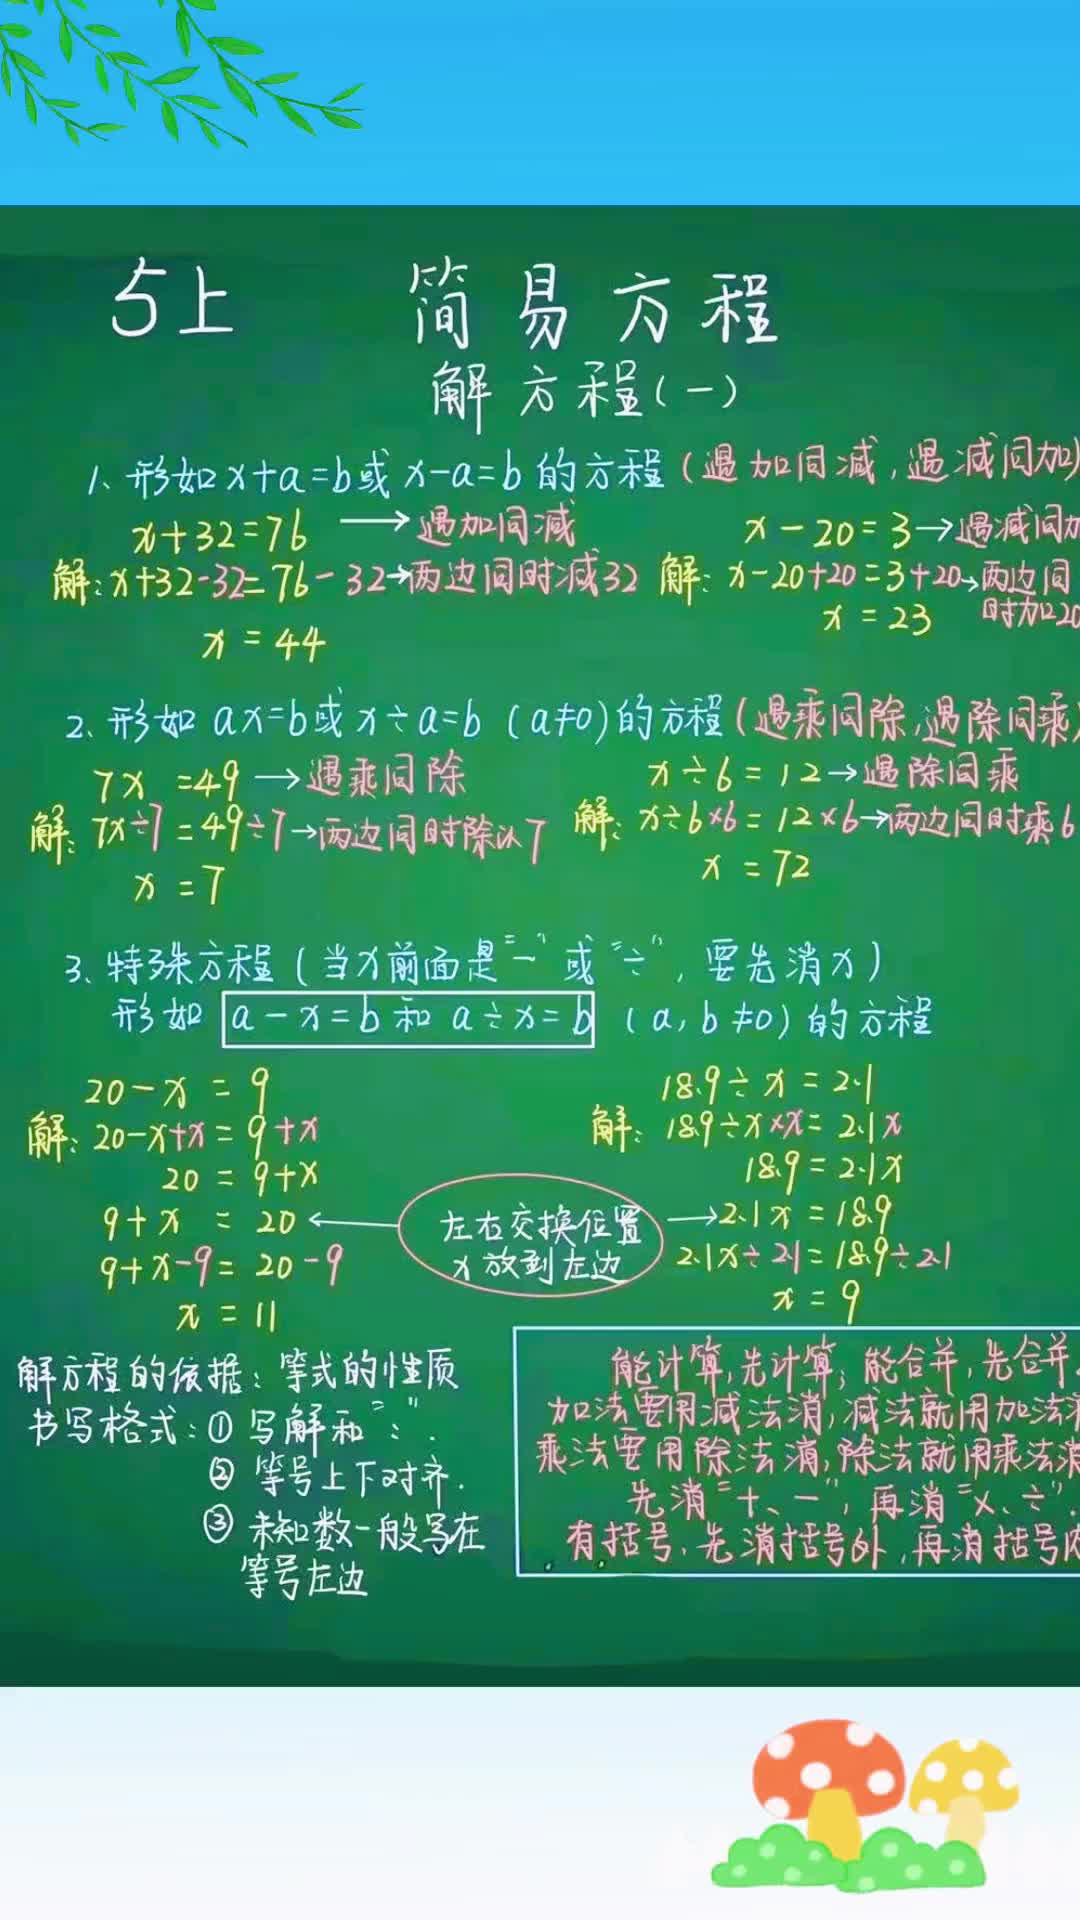 5上 简易方程
解方程(一)
1、形如x+a=b或x-a=b的方程(遇加同减,遇减同加)
x+32=76 → 遇加同减
x-20=3→遇减同加
解:x+32-32=76-32→两边同时减32
解:x-20+20=3+20→两边同时加20
x=44
x=23
2、形如ax=b或x÷a=b(a≠0)的方程(遇乘同除,遇除同乘)
7x=49→遇乘同除
x÷6=12→遇除同乘
解:7x÷7=49÷7→两边同时除以7
解:x÷6×6=12×6→两边同时乘6
x=7
x=72
3、特殊方程(当x前面是"-"或"÷",要先消x)
形如 a-x=b和a÷x=b (a,b≠0)的方程
20-x=9
解:20-x+x=9+x
20=9+x
9+x=20
9+x-9=20-9
x=11
左右交换位置
x放到左边
18.9÷x=2.1
解:18.9÷x×x=2.1x
18.9=2.1x
2.1x=18.9
2.1x÷2.1=18.9÷2.1
x=9
解方程的依据:等式的性质
书写格式:①写解和":".
②等号上下对齐.
③未知数一般写在
等号左边
能计算,先计算;能合并,先合并.
加法要用减法消,减法就用加法消
乘法要用除法消,除法就用乘法消
先消"+、-",再消"×、÷".
有括号,先消括号外,再消括号内